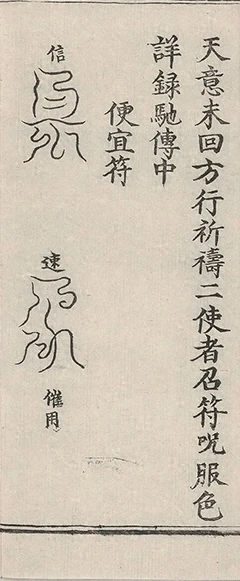 天意未回方行祈禱二使者召符呪服色
詳録馳傳中
便宜符
信
速
催用